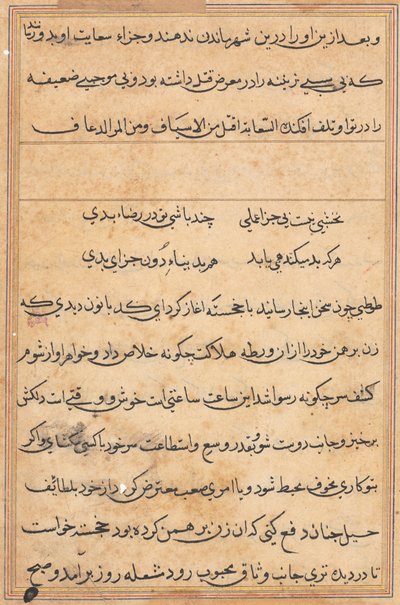 و بعد ازین او را درین شهر ماندن ندهند و جزاء سعایت او بدو رسانند
که بی سببی زنده را در معرض قتل داشته بود و بی موجبی ضعیفه
را در تو او تلف افکنده السعایة اقتل من الاسیاف و من السم الذعاف
نخشبی نیست بی جزا عملی چند باشی تو در رضاء بدی
هرکه بد میکند همی یابد هم بدنیاء دون جزای بدی
طوطی چون سخن اینجا رسانید با خجسته اغاز کرد ای کدبانو ندیدی که
زن برهمن خود را ازان ورطه هلاکت چگونه خلاص داد و خواهر او از شوم
کشف سر چگونه رسوا شد این ساعت ساعتی است خوش و وقتی است دلکش
برخیز و جانب دوست شو و بقدر وسع و استطاعت سر خود با کسی مکشای و اگر
بتو کاری مخوف محیط شود و یا امری صعب معترض گردد از خود بلطائف
حیل چنان دفع کنی که ان زن برهمن کرده بود خجسته خواست
تا در دیدن تری جانب وثاق محبوب رود شعله روز برآمد و صبح